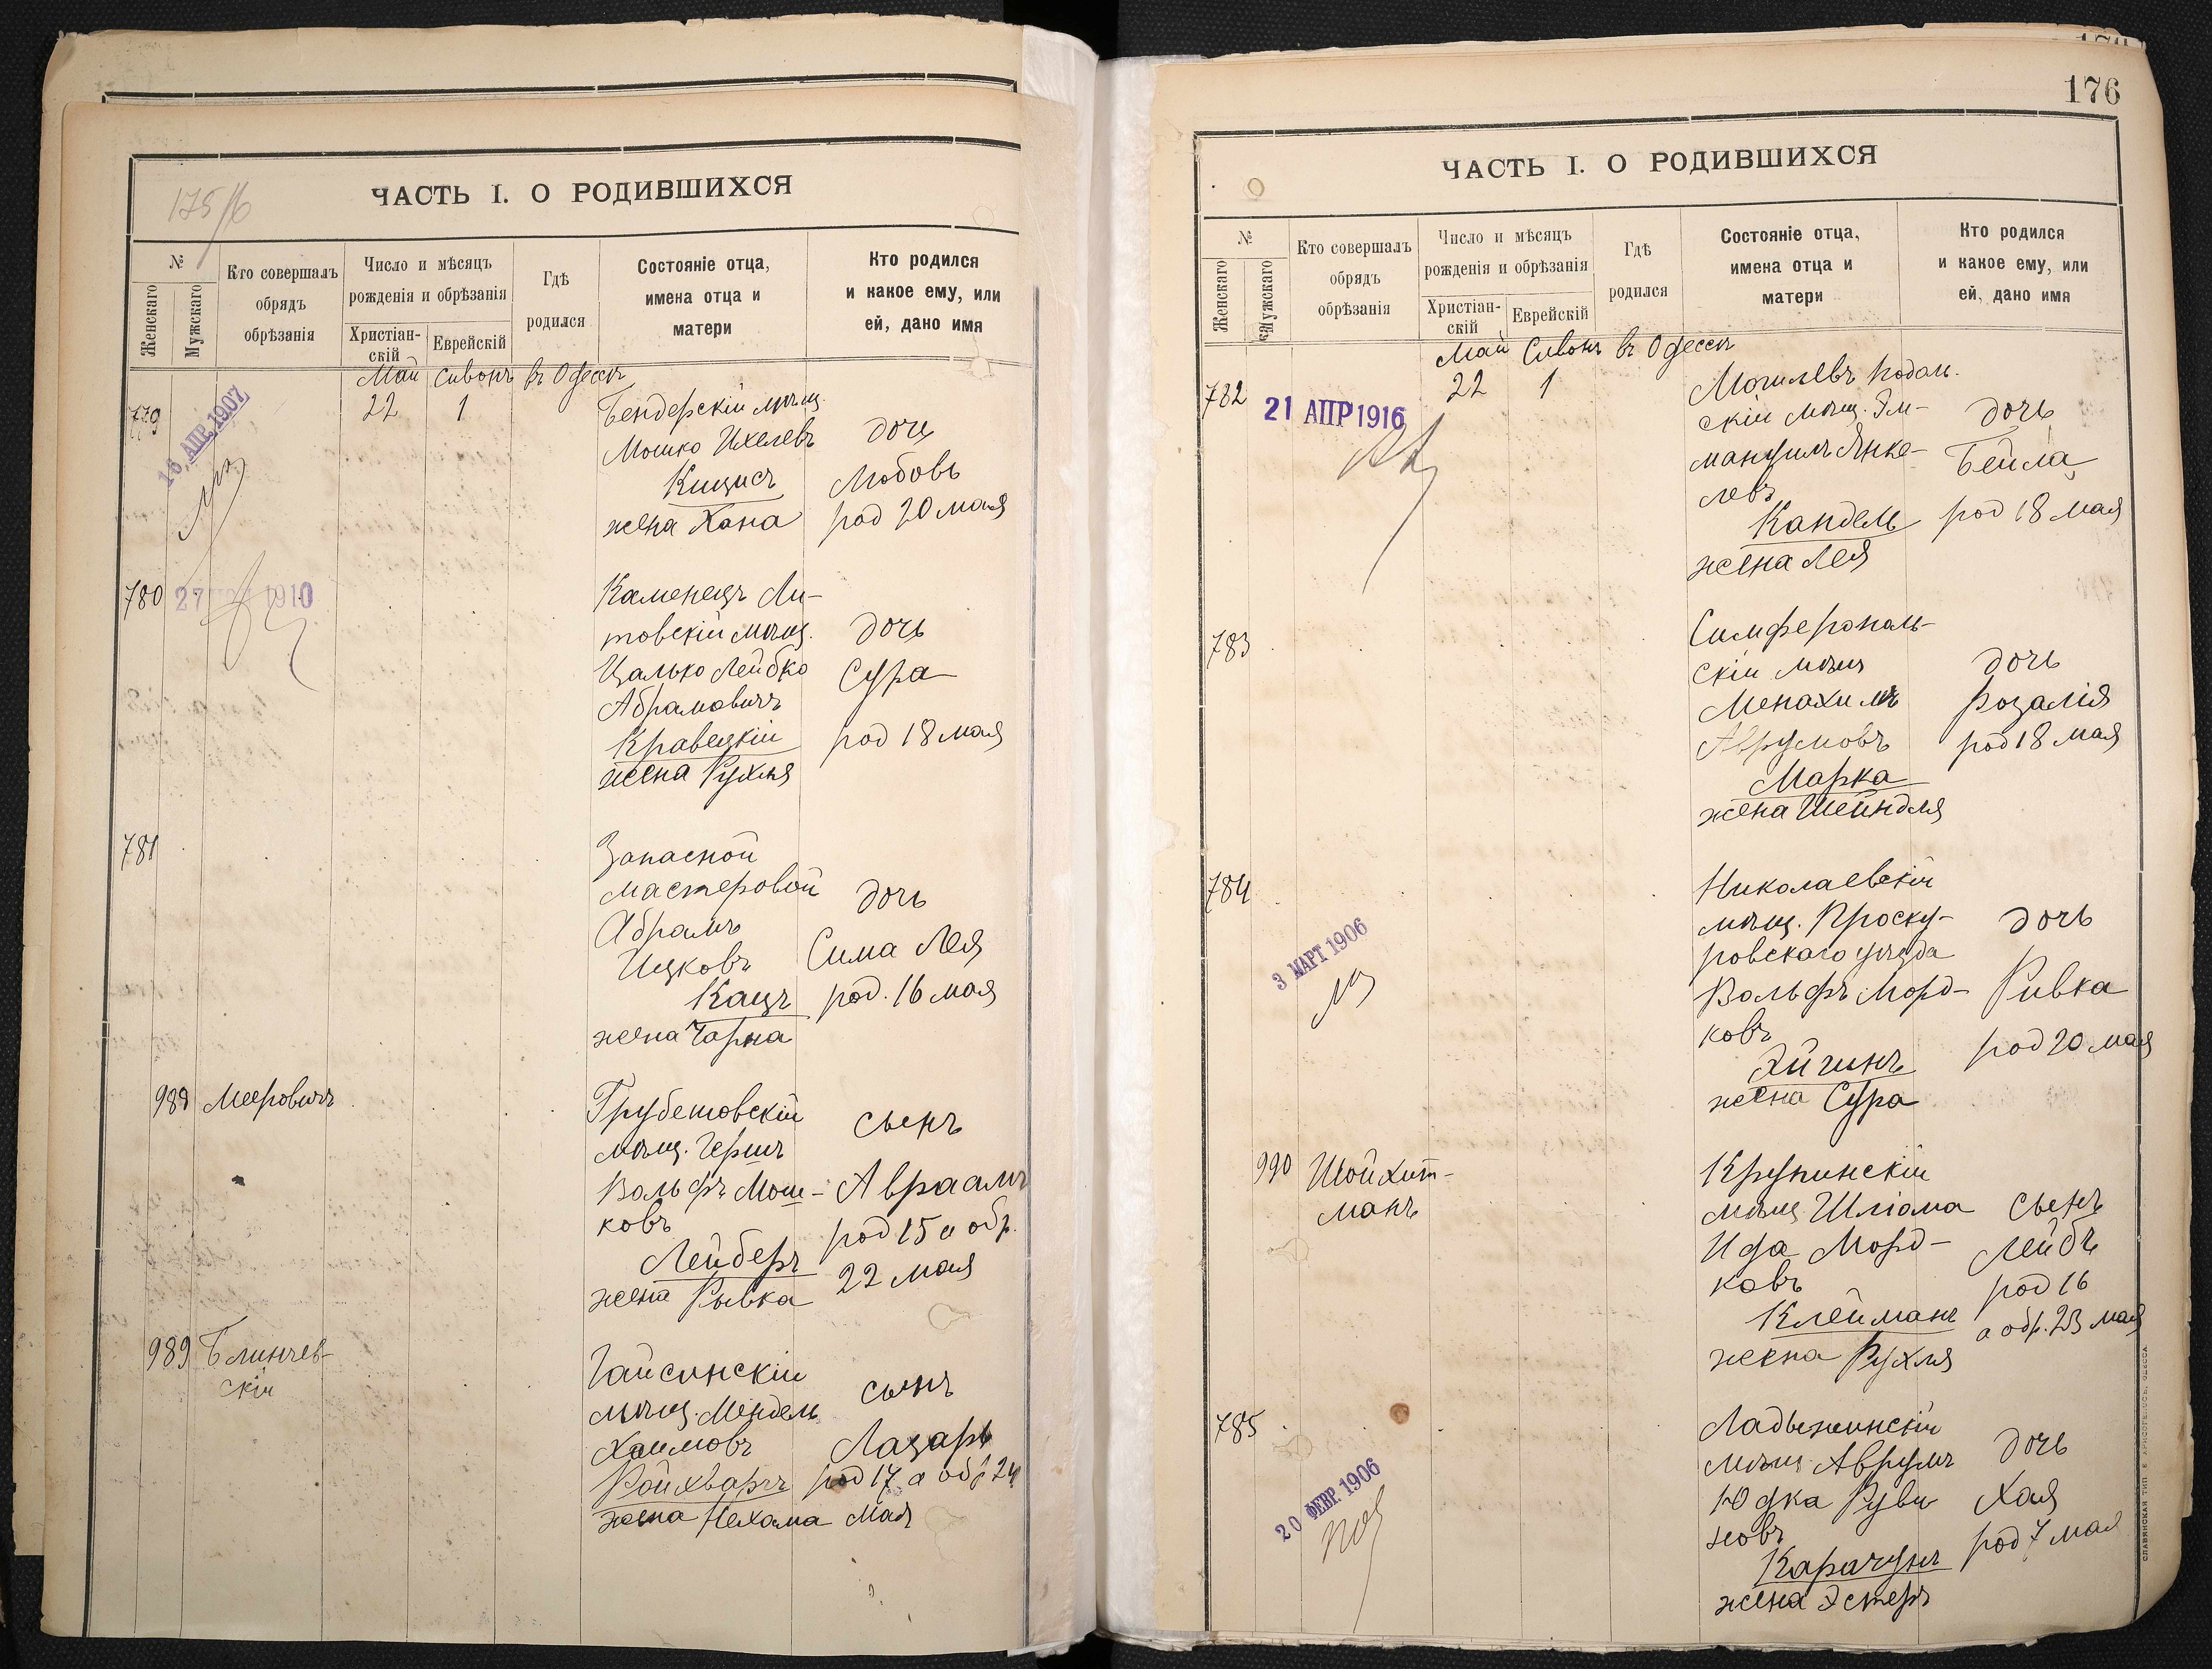 175/6
ЧАСТЬ I. О РОДИВШИХСЯ
№
Женскаго
Мужскаго
Кто совершалъ
обрядъ
обрѣзанія
Число и мѣсяцъ
рожденія и обрѣзанія
Христіан-
скій
Еврейскій
Гдѣ
родился
Состояніе отца,
имена отца и
матери
Кто родился
и какое ему, или
ей, дано имя
Май Сивонъ въ Одессѣ
779
16 АПР. 1907
22 1
Бендерскій мѣщ.
Мошко Ихелевъ
Кицисъ
жена Хана
дочь
Любовь
род 20 мая
780
27 1910
Каменецъ Ли-
товскій мѣщ.
Цалько Лейбко
Абрамовичъ
Кравецкій
жена Рухля
дочь
Сура
род 18 мая
781
Запасной
мастеровой
Абрамъ
Ицковъ
Кацъ
жена Чарна
дочь
Сима Лея
род. 16 мая
988 Мееровичъ
Грубешовскій
мѣщ. Гершъ
Вольфъ Мош-
ковъ
Лейберъ
жена Рывка
сынъ
Авраамъ
род 15 а обр.
22 мая
989 Блинчев-
скій
Гайсинскій
мѣщ. Мендель
Хаимовъ
Ройхваргъ
жена Нехама
сынъ
Лазарь
род 17 а обр 24
мая
176
ЧАСТЬ I. О РОДИВШИХСЯ
№
Женскаго
Мужскаго
Кто совершалъ
обрядъ
обрѣзанія
Число и мѣсяцъ
рожденія и обрѣзанія
Христіан-
скій
Еврейскій
Гдѣ
родился
Состояніе отца,
имена отца и
матери
Кто родился
и какое ему, или
ей, дано имя
Май Сивонъ въ Одессѣ
782
21 АПР 1916
22 1
Могилевъ Подоль-
скій мѣщ. Эм-
мануилъ Янке-
левъ
Кандель
жена Лея
дочь
Бейла
род 18 мая
783
Симферополь-
скій мѣщ
Менахимъ
Аврумовъ
Марка
жена Шейндля
дочь
Розалія
род 18 мая
784
3 МАРТ 1906
Николаевскій
мѣщ. Проску-
ровскаго уѣзда
Вольфъ Морд-
ковъ
Эйгинъ
жена Сура
дочь
Ривка
род 20 мая
990 Шойхит-
манъ
Крупинскій
мѣщ Шліома
Ида Морд-
ковъ
Клейманъ
жена Рухля
сынъ
Лейбъ
род 16
а обр. 23 мая
785
20 ФЕВР. 1906
Ладыжинскій
мѣщ Аврумъ
Юдка Руви
новъ
Карачунъ
жена Эстеръ
дочь
Хая
род 7 мая